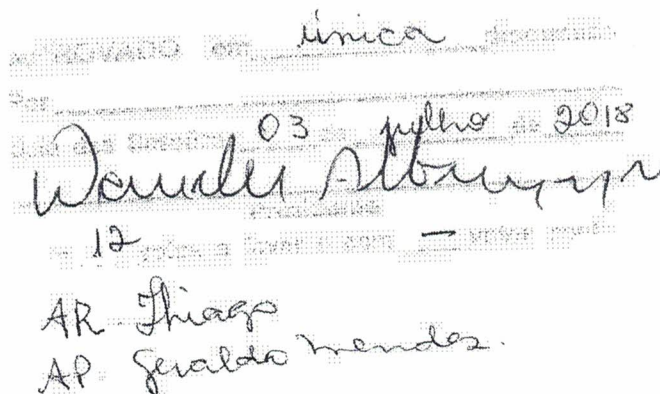 APROVADO em única discussão
Por
Sala das Sessões 03 de julho de 2018
Presidente
12 votos a favor e com — votos contra
AR. Thiago
AP. Geraldo Mendes.